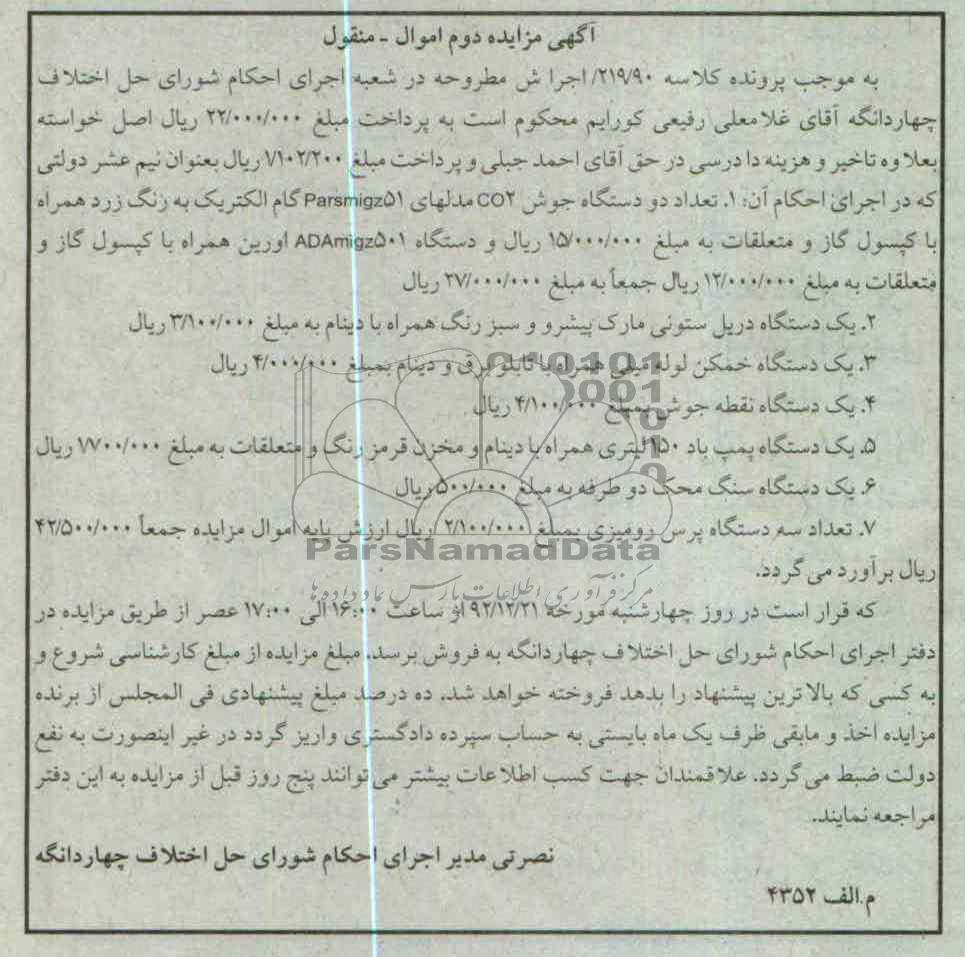 آگهی مزایده دوم اموال ـ منقول
به موجب پرونده کلاسه ۲۱۹/۹۰/ اجرا ش مطروحه در شعبه اجرای احکام شورای حل اختلاف
چهاردانگه آقای غلامعلی رفیعی کورایم محکوم است به پرداخت مبلغ ۲۲/۰۰۰/۰۰۰ ریال اصل خواسته
بعلاوه تاخیر و هزینه دادرسی در حق آقای احمد جبلی و پرداخت مبلغ ۱/۱۰۲/۲۰۰ ریال بعنوان نیم عشر دولتی
که در اجرای احکام آن: ۱. تعداد دو دستگاه جوش CO۲ مدلهای Parsmigz۵۱ گام الکتریک به رنگ زرد همراه
با کپسول گاز و متعلقات به مبلغ ۱۵/۰۰۰/۰۰۰ ریال و دستگاه ADAmigz۵۰۱ اورین همراه با کپسول گاز و
متعلقات به مبلغ ۱۲/۰۰۰/۰۰۰ ریال جمعاً به مبلغ ۲۷/۰۰۰/۰۰۰ ریال
۲. یک دستگاه دریل ستونی مارک پیشرو و سبز رنگ همراه با دینام به مبلغ ۳/۱۰۰/۰۰۰ ریال
۳. یک دستگاه خمکن لوله میلی همراه با تابلو برق و دینام بمبلغ ۴/۰۰۰/۰۰۰ ریال
۴. یک دستگاه نقطه جوش بمبلغ ۴/۱۰۰/۰۰۰ ریال
۵. یک دستگاه پمپ باد ۱۵۰ لیتری همراه با دینام و مخزن قرمز رنگ و متعلقات به مبلغ ۱/۷۰۰/۰۰۰ ریال
۶. یک دستگاه سنگ محک دو طرفه به مبلغ ۵۰۰/۰۰۰ ریال
۷. تعداد سه دستگاه پرس رومیزی بمبلغ ۲/۱۰۰/۰۰۰ ریال ارزش پایه اموال مزایده جمعاً ۴۲/۵۰۰/۰۰۰
ریال برآورد می گردد.
که قرار است در روز چهارشنبه مورخه ۹۲/۱۲/۲۱ از ساعت ۱۶:۰۰ الی ۱۷:۰۰ عصر از طریق مزایده در
دفتر اجرای احکام شورای حل اختلاف چهاردانگه به فروش برسد. مبلغ مزایده از مبلغ کارشناسی شروع و
به کسی که بالاترین پیشنهاد را بدهد فروخته خواهد شد. ده درصد مبلغ پیشنهادی فی المجلس از برنده
مزایده اخذ و مابقی ظرف یک ماه بایستی به حساب سپرده دادگستری واریز گردد در غیر اینصورت به نفع
دولت ضبط می گردد. علاقمندان جهت کسب اطلاعات بیشتر می توانند پنج روز قبل از مزایده به این دفتر
مراجعه نمایند.
نصرتی مدیر اجرای احکام شورای حل اختلاف چهاردانگه
م.الف ۴۳۵۲
ParsNamadData
مرکز فرآوری اطلاعات پارس نماد داده ها